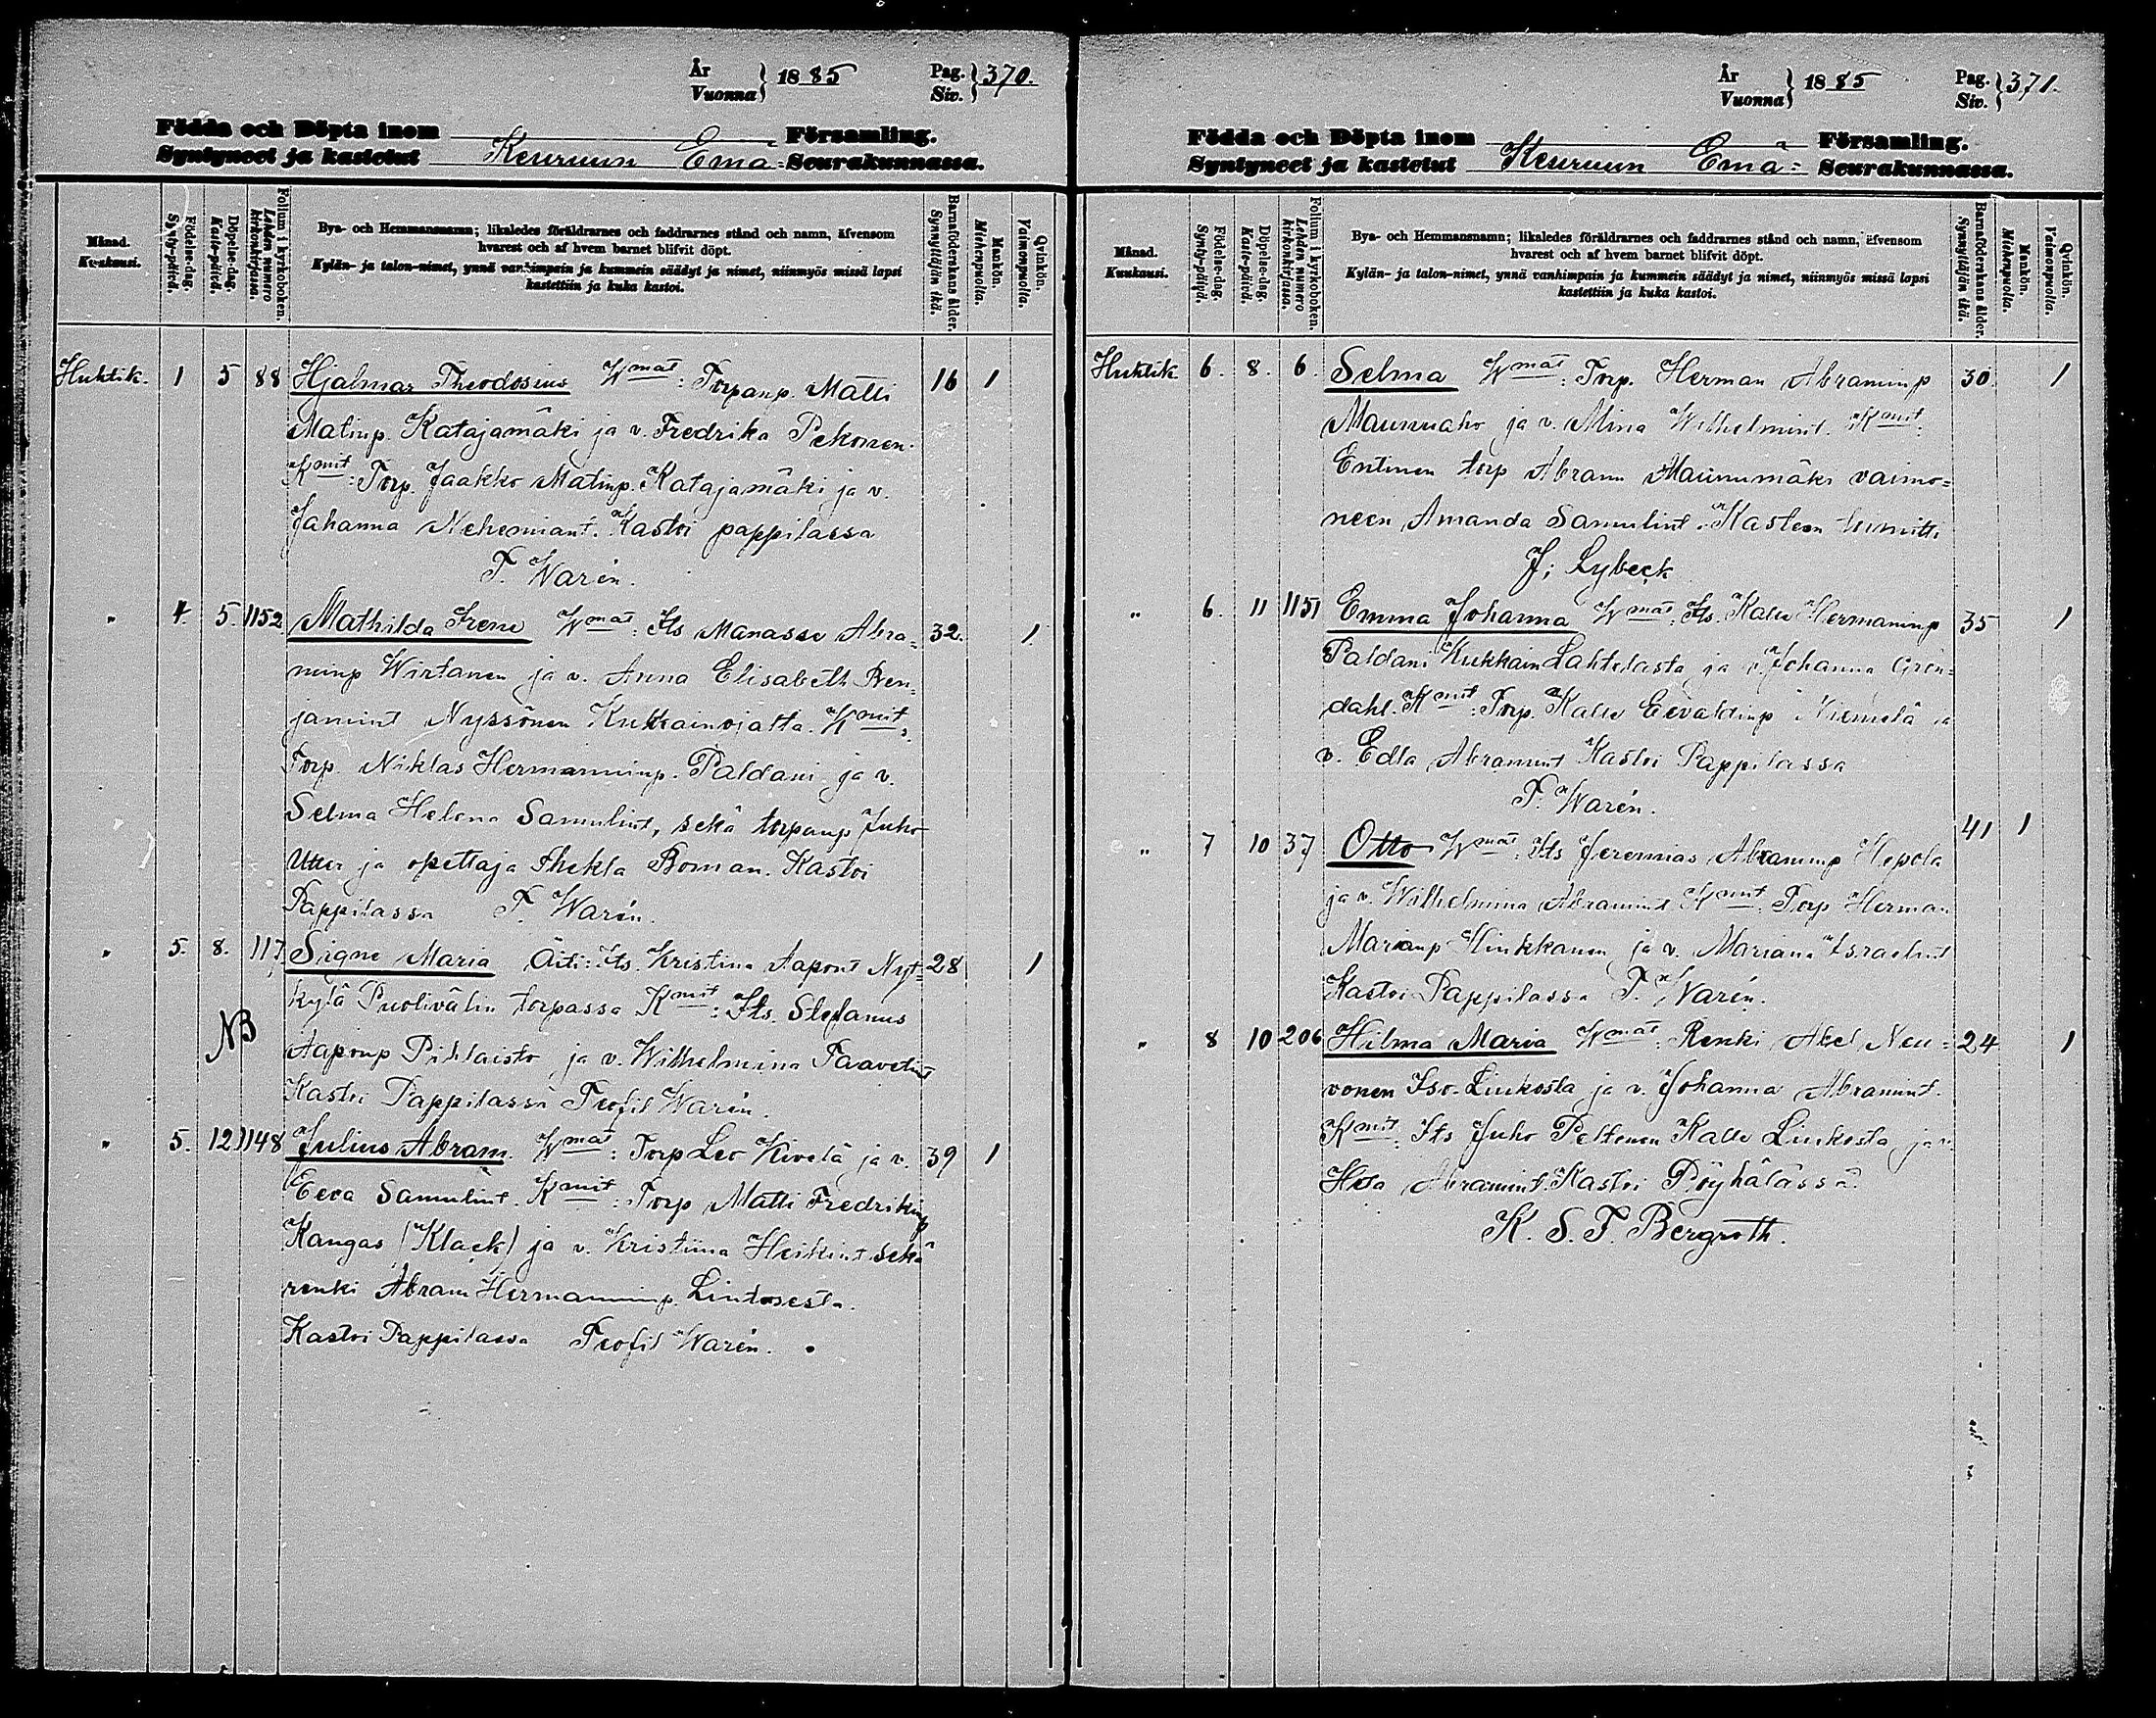 År
Vuonna } 1885 Pag.
Siv. } 370.
Födda och Döpta inom Församling.
Syntyneet ja kastetut Keuruun Emä= Seurakunnassa.
Månad.
Kuukausi.
Födelse-dag.
Synty-päivä.
Döpelse-dag.
Kaste-päivä.
Folium i kyrkoboken.
Lehden numero
kirkonkirjassa.
Bya- och Hemmansnamn; likaledes föräldrarnes och faddrarnes stånd och namn, äfvensom
hvarest och af hvem barnet blifvit döpt.
Kylän- ja talon-nimet, ynnä vanhimpain ja kummein säädyt ja nimet, niinmyös missä lapsi
kastettiin ja kuka kastoi.
Barnaföderskans ålder.
Synnyttäjän ikä.
Mankön.
Miehenpuolia.
Qvinkön.
Vaimonpuolia.
Huhtik. 1 5 88 Hjalmar Theodosius Wmat: Torpanp. Matti 16 1
Matinp. Katajamäki ja v. Fredrika Pekonen.
Kmit: Torp. Jaakko Matinp. Katajamäki ja v.
Johanna Nehemiant. Kastoi pappilassa
T. Warén.
" 4. 5. 1152 Mathilda Irene Wmat: Its Manasse Abra= 32. 1
minp Wirtanen ja v. Anna Elisabeth Ben=
jamint Nyssönen Kukkainojalta. Kmit:
Torp. Niklas Hermanninp. Paldani ja v.
Selma Helena Samulint, sekä torpanp Juho
Utter ja opettaja Thekla Boman. Kastoi
Pappilassa T. Warén.
" 5. 8. 117 Signe Maria Äiti: Its. Kristina Aapont Nyt= 28 1
kylä Puolivälin torpassa Kmit: Its. Stefanus
NB Aaponp Pihlaisto ja v. Wilhelmina Taavetint
Kastoi Pappilassa Teofil Warén.
" 5. 12 1148 Julius Abram. Wmat: Torp Leo Kivelä ja v. 39 1
Eeva Samulint. Kmit: Torp Matti Fredrikinp
Kangas (Klack) ja v. Kristiina Heikint sekä
renki Abram Hermanninp. Lintusesta.
Kastoi Pappilassa Teofil Warén.
År
Vuonna } 1885 Pag.
Siv. } 371.
Födda och Döpta inom Församling.
Syntyneet ja kastetut Keuruun Emä= Seurakunnassa.
Månad.
Kuukausi.
Födelse-dag.
Synty-päivä.
Döpelse-dag.
Kaste-päivä.
Folium i kyrkoboken.
Lehden numero
kirkonkirjassa.
Bya- och Hemmansnamn; likaledes föräldrarnes och faddrarnes stånd och namn, äfvensom
hvarest och af hvem barnet blifvit döpt.
Kylän- ja talon-nimet, ynnä vanhimpain ja kummein säädyt ja nimet, niinmyös missä lapsi
kastettiin ja kuka kastoi.
Barnaföderskans ålder.
Synnyttäjän ikä.
Mankön.
Miehenpuolia.
Qvinkön.
Vaimonpuolia.
Huhtik 6. 8. 6. Selma Wmat: Torp. Herman Abraminp 30. 1
Maunuaho ja v. Mina Wilhelmint. Kmit:
Entinen torp Abram Maunumäki vaimo=
neen Amanda Samulint. Kasteen toimitti
J. Lybeck
" 6. 11 1151 Emma Johanna Wmat: Its. Kalle Hermaninp 35 1
Paldani Kukkain Lahtelasta ja v. Johanna Grön=
dahl. Kmit: Torp. Kalle Eevaldinp Niemelä ja
v. Edla Abramint Kastoi Pappilassa
T. Warén.
" 7 10 37 Otto Wmat: Its Jeremias Abraminp Hepola 41 1
ja v. Wilhelmina Abramint Kmit: Torp Herman
Marianp Hinkkanen ja v. Mariana Israelint
Kastoi Pappilassa T. Warén.
" 8 10 206 Hilma Maria Wmat: Renki Abel Neu= 24 1
vonen Iso-Liukosta ja v. Johanna Abramint.
Kmit: Its Juho Peltonen Kalle Liukosta ja v.
Abramint. Kastoi Pöyhälässä
K. S. T. Bergroth.